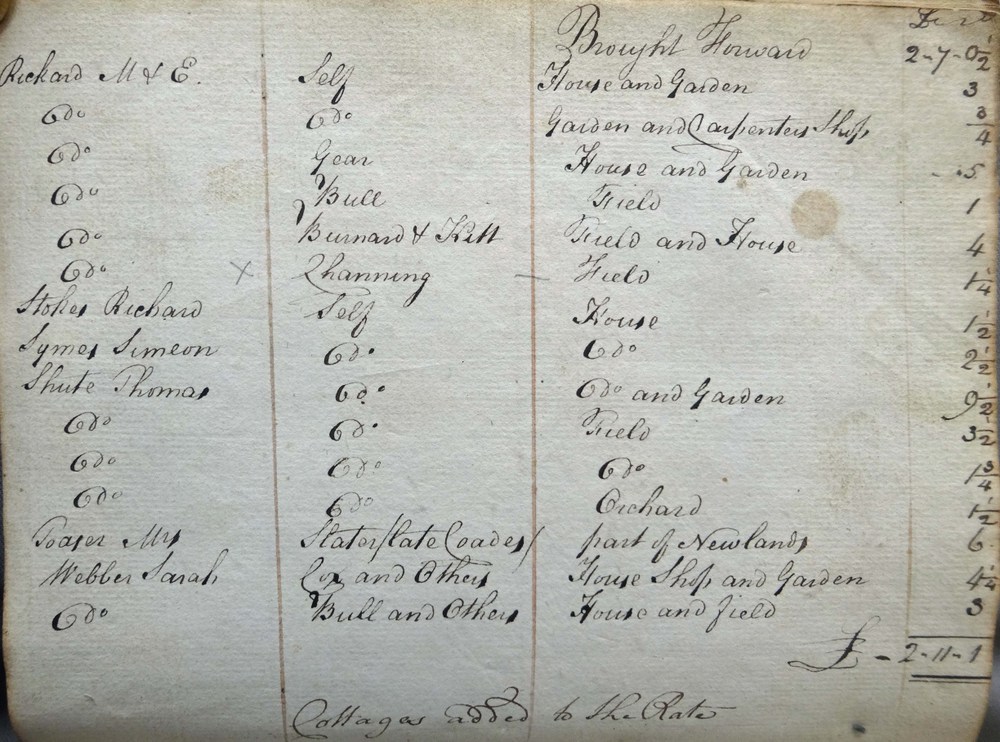 £ s d
Brought Forward 2-7-0½
Richard M & E. Self House and Garden 3
Do Do Garden and Carpenters Shop ¾
Do Gear House and Garden - .5
Do Bull Field 1
Do Burnard & Kitt Field and House 4
Do x Channing — Field 1¼
Stokes Richard Self House 1½
Symes Simeon Do Do 2½
Shute Thomas Do Do and Garden 9½
Do Do Field 3½
Do Do Do 1¾
Do Do Orchard 1½
Toaser Mrs Slater/late Coades/ part of Newlands 6
Webber Sarah Cox and Others House Shop and Garden 4¼
Do Bull and Others House and field 3
£ - 2-11-1
Cottages added to the Rate